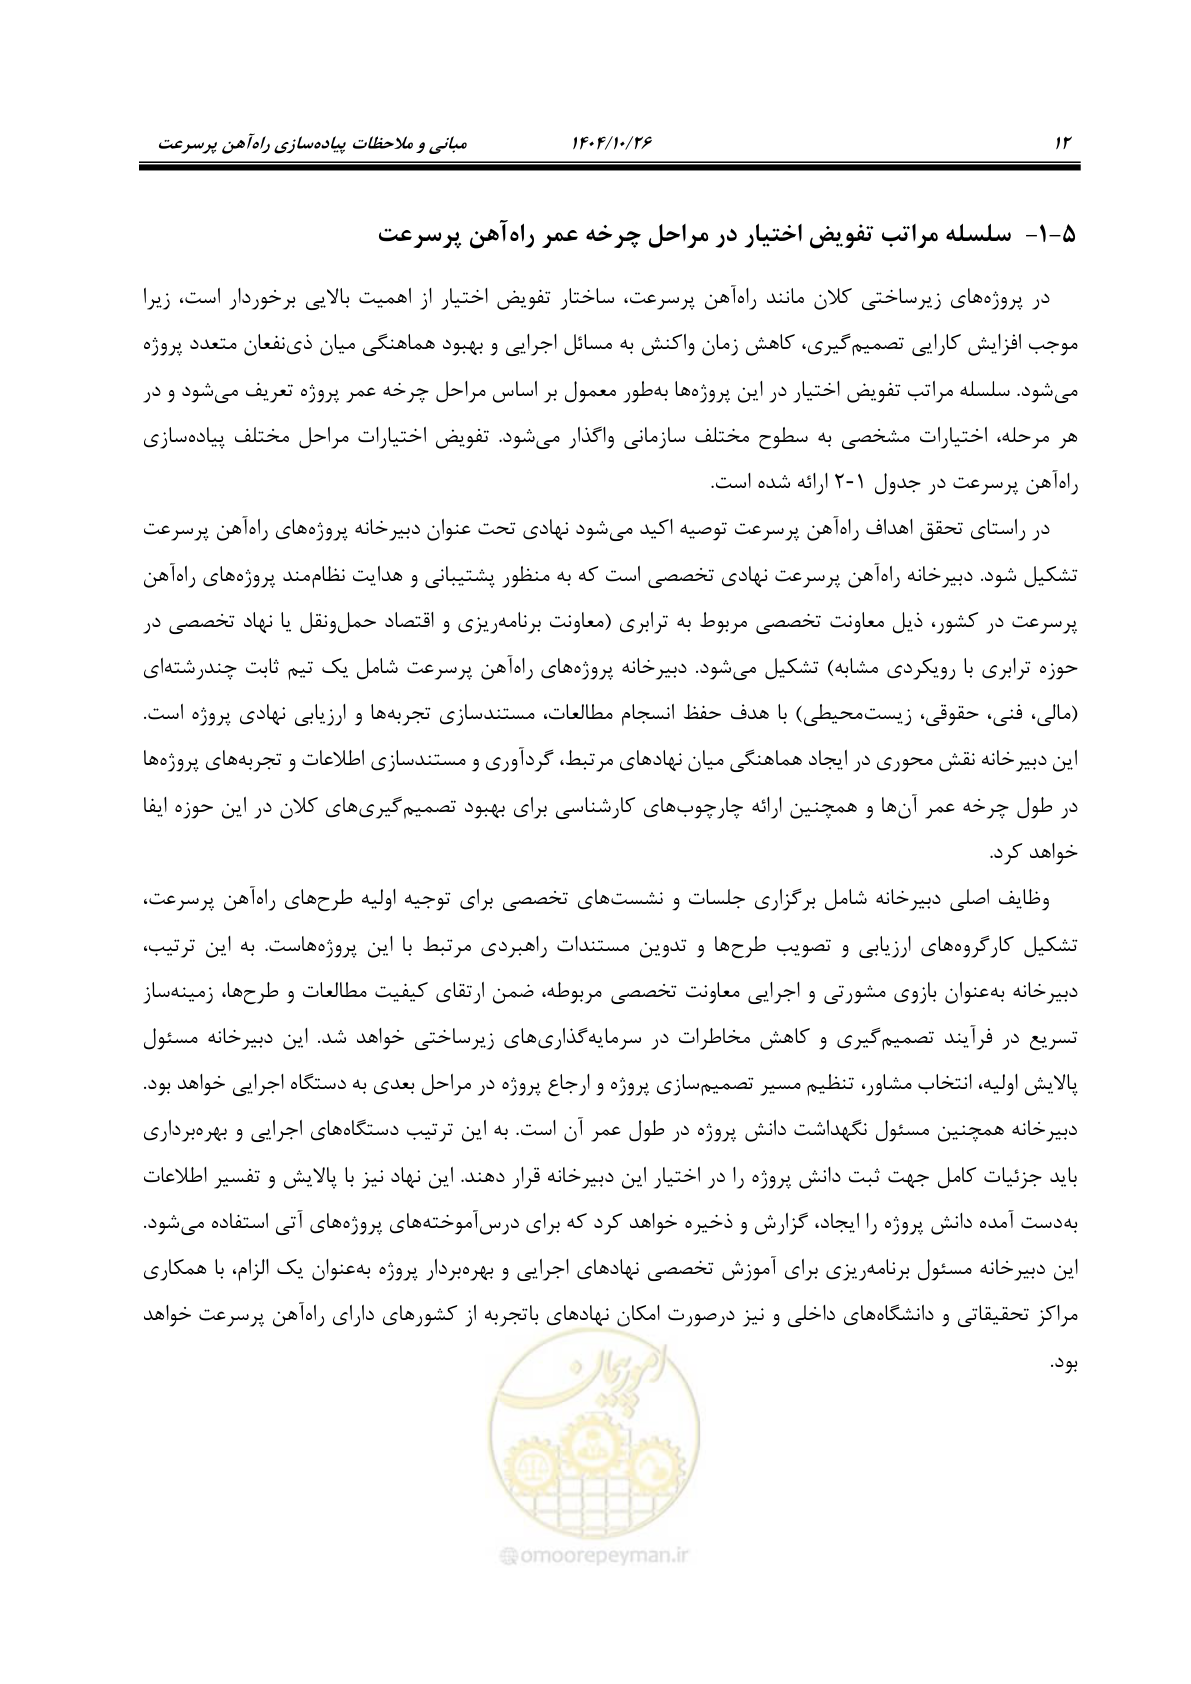 ۱۲ ۱۴۰۴/۱۰/۲۶ مبانی و ملاحظات پیاده‌سازی راه‌آهن پرسرعت
۱-۵- سلسله مراتب تفویض اختیار در مراحل چرخه عمر راه‌آهن پرسرعت
در پروژه‌های زیرساختی کلان مانند راه‌آهن پرسرعت، ساختار تفویض اختیار از اهمیت بالایی برخوردار است، زیرا
موجب افزایش کارایی تصمیم‌گیری، کاهش زمان واکنش به مسائل اجرایی و بهبود هماهنگی میان ذی‌نفعان متعدد پروژه
می‌شود. سلسله مراتب تفویض اختیار در این پروژه‌ها به‌طور معمول بر اساس مراحل چرخه عمر پروژه تعریف می‌شود و در
هر مرحله، اختیارات مشخصی به سطوح مختلف سازمانی واگذار می‌شود. تفویض اختیارات مراحل مختلف پیاده‌سازی
راه‌آهن پرسرعت در جدول ۱-۲ ارائه شده است.
در راستای تحقق اهداف راه‌آهن پرسرعت توصیه اکید می‌شود نهادی تحت عنوان دبیرخانه پروژه‌های راه‌آهن پرسرعت
تشکیل شود. دبیرخانه راه‌آهن پرسرعت نهادی تخصصی است که به منظور پشتیبانی و هدایت نظام‌مند پروژه‌های راه‌آهن
پرسرعت در کشور، ذیل معاونت تخصصی مربوط به ترابری (معاونت برنامه‌ریزی و اقتصاد حمل‌ونقل یا نهاد تخصصی در
حوزه ترابری با رویکردی مشابه) تشکیل می‌شود. دبیرخانه پروژه‌های راه‌آهن پرسرعت شامل یک تیم ثابت چندرشته‌ای
(مالی، فنی، حقوقی، زیست‌محیطی) با هدف حفظ انسجام مطالعات، مستندسازی تجربه‌ها و ارزیابی نهادی پروژه است.
این دبیرخانه نقش محوری در ایجاد هماهنگی میان نهادهای مرتبط، گردآوری و مستندسازی اطلاعات و تجربه‌های پروژه‌ها
در طول چرخه عمر آن‌ها و همچنین ارائه چارچوب‌های کارشناسی برای بهبود تصمیم‌گیری‌های کلان در این حوزه ایفا
خواهد کرد.
وظایف اصلی دبیرخانه شامل برگزاری جلسات و نشست‌های تخصصی برای توجیه اولیه طرح‌های راه‌آهن پرسرعت،
تشکیل کارگروه‌های ارزیابی و تصویب طرح‌ها و تدوین مستندات راهبردی مرتبط با این پروژه‌هاست. به این ترتیب،
دبیرخانه به‌عنوان بازوی مشورتی و اجرایی معاونت تخصصی مربوطه، ضمن ارتقای کیفیت مطالعات و طرح‌ها، زمینه‌ساز
تسریع در فرآیند تصمیم‌گیری و کاهش مخاطرات در سرمایه‌گذاری‌های زیرساختی خواهد شد. این دبیرخانه مسئول
پالایش اولیه، انتخاب مشاور، تنظیم مسیر تصمیم‌سازی پروژه و ارجاع پروژه در مراحل بعدی به دستگاه اجرایی خواهد بود.
دبیرخانه همچنین مسئول نگهداشت دانش پروژه در طول عمر آن است. به این ترتیب دستگاه‌های اجرایی و بهره‌برداری
باید جزئیات کامل جهت ثبت دانش پروژه را در اختیار این دبیرخانه قرار دهند. این نهاد نیز با پالایش و تفسیر اطلاعات
به‌دست آمده دانش پروژه را ایجاد، گزارش و ذخیره خواهد کرد که برای درس‌آموخته‌های پروژه‌های آتی استفاده می‌شود.
این دبیرخانه مسئول برنامه‌ریزی برای آموزش تخصصی نهادهای اجرایی و بهره‌بردار پروژه به‌عنوان یک الزام، با همکاری
مراکز تحقیقاتی و دانشگاه‌های داخلی و نیز درصورت امکان نهادهای باتجربه از کشورهای دارای راه‌آهن پرسرعت خواهد
بود.
امور پیمان
@omoorepeyman.ir